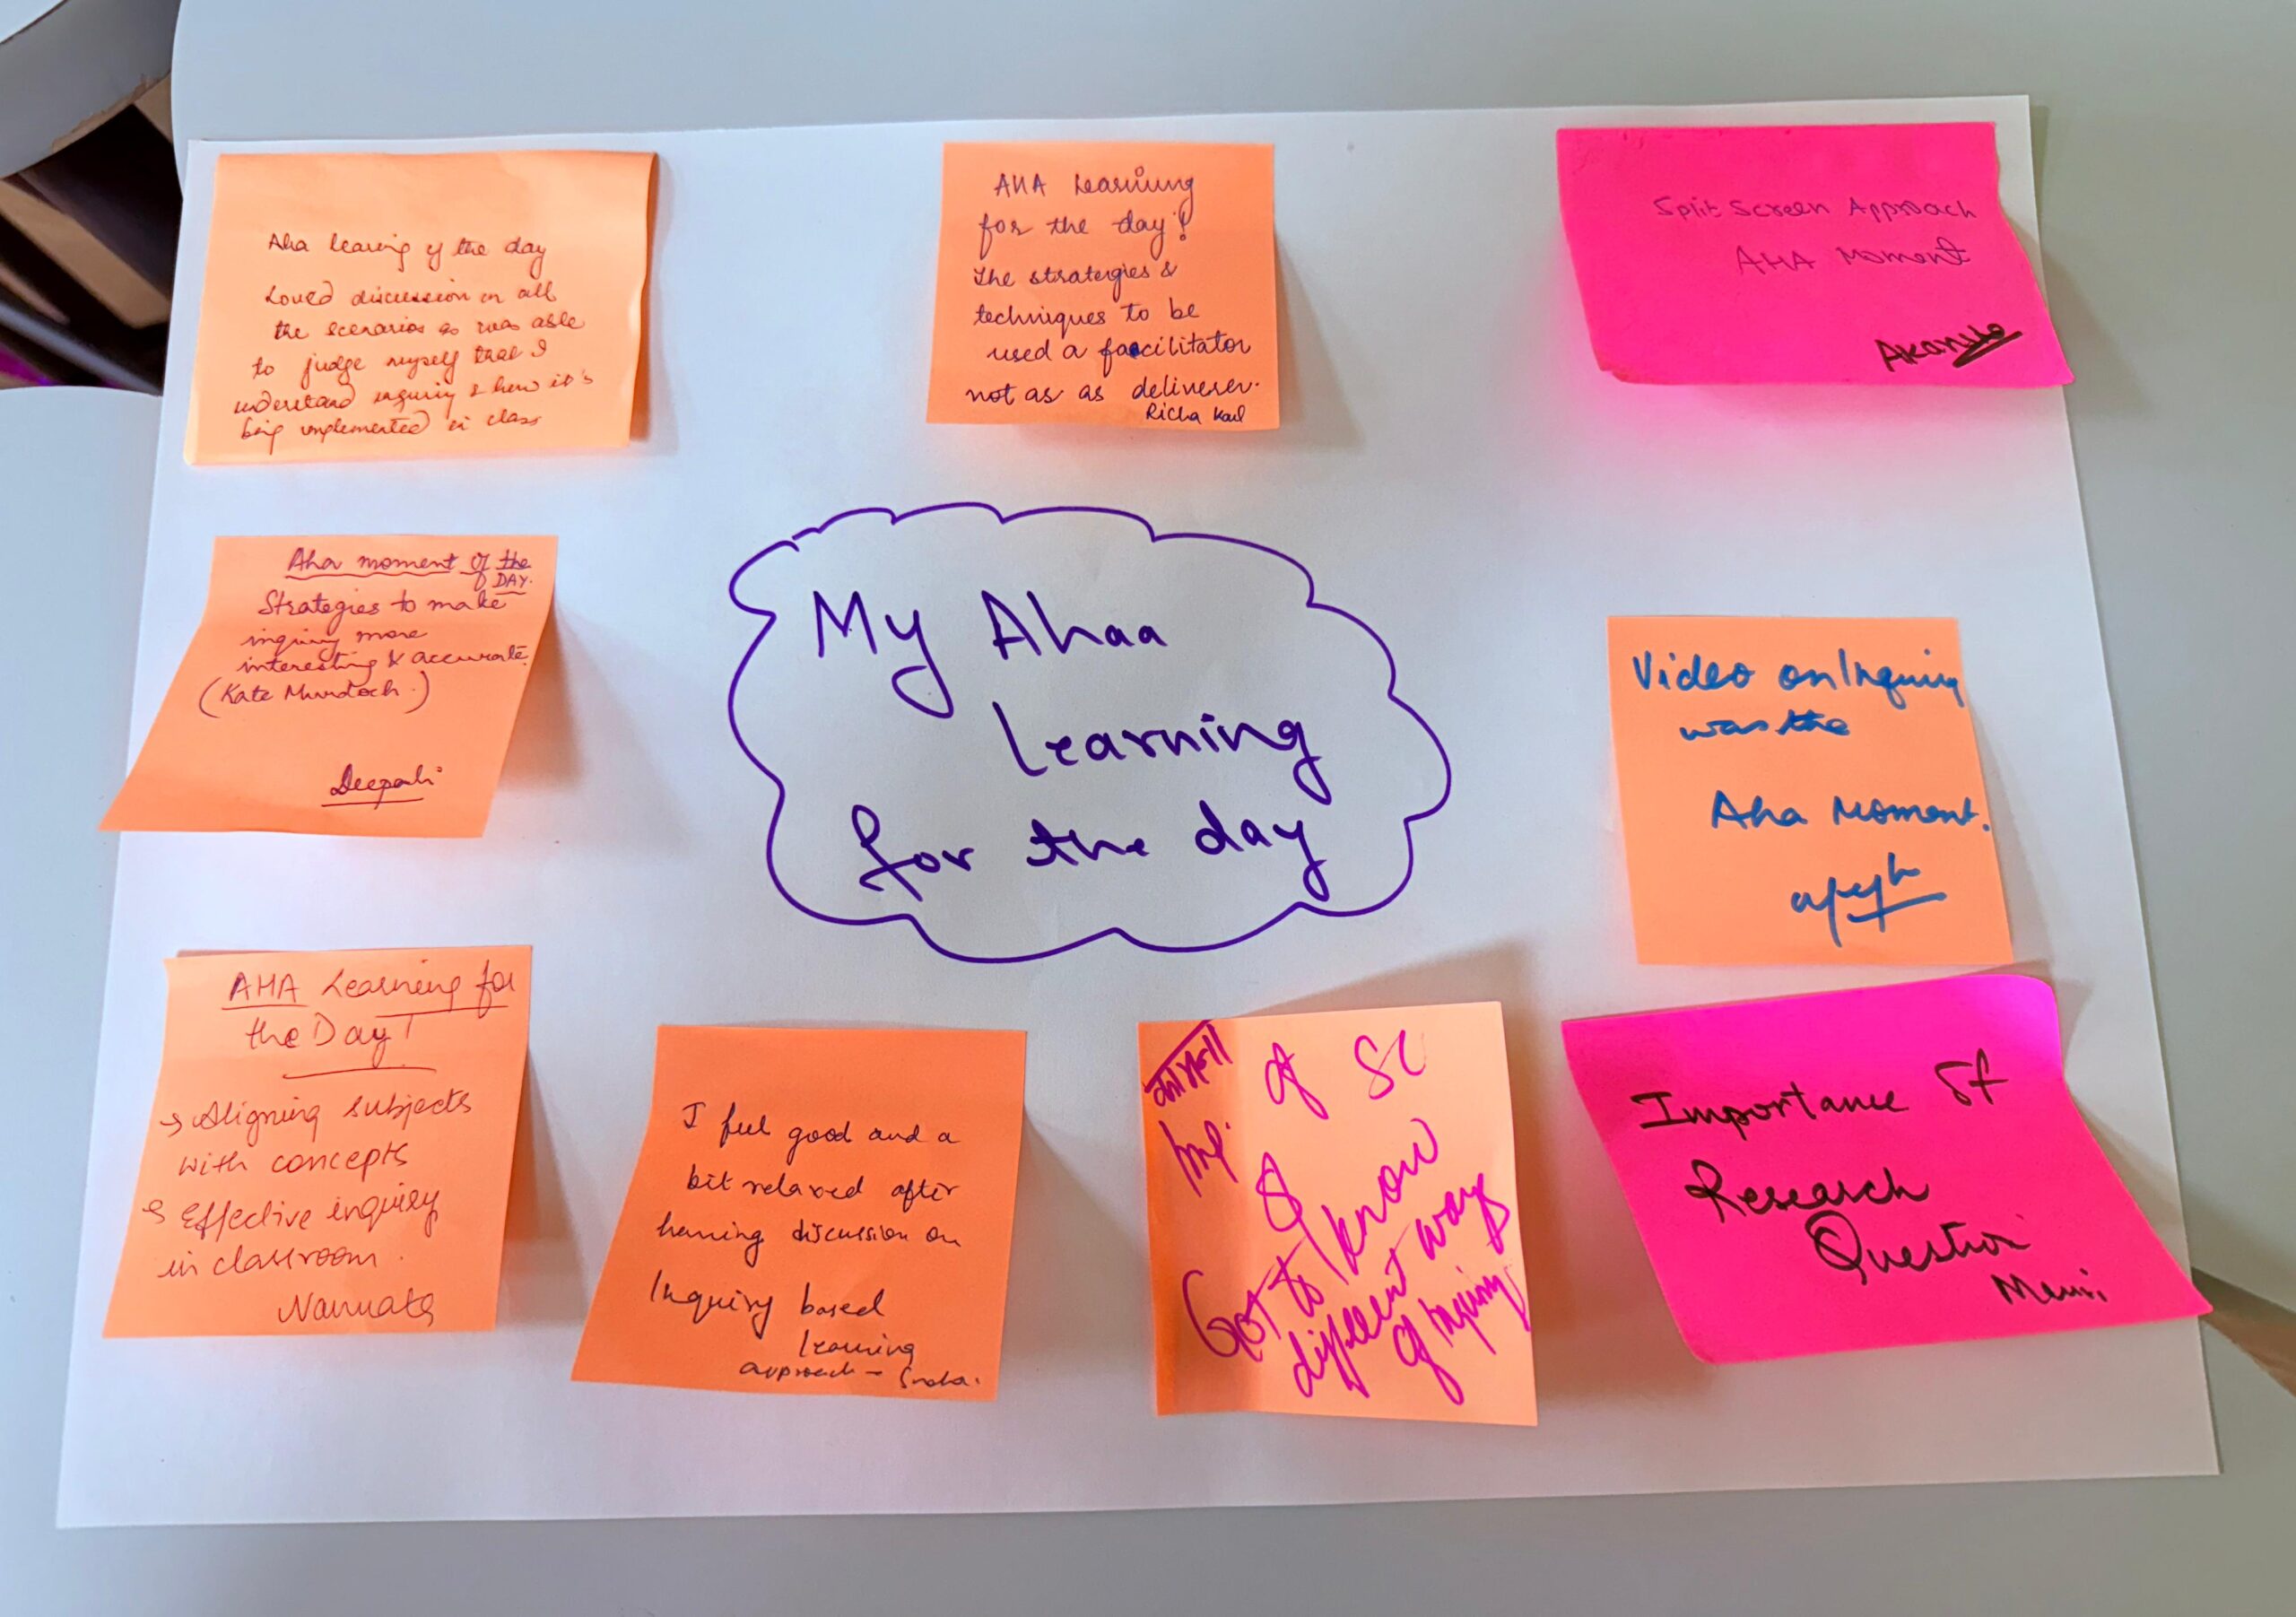 Aha learing of the day
Loved discussion on all
the scenarios as was able
to judge myself that I
understand inquiry & how it's
being implemented in class
AHA Learning
for the day!
The stratergies &
techniques to be
used a facilitator
not as as deliverer.
Richa Kaul
Split Screen Approach
AHA Moment
Aha moment of the
DAY.
Strategies to make
inquiry more
interesting & accurate.
(Kate Murdoch.)
Deepali
My Ahaa
Learning
for the day
Video on Inquiry
was the
Aha Moment.
AHA Learning for
the Day!
→ Aligning subjects
with concepts
→ Effective inquiry
in classroom.
Namrata
I feel good and a
bit relaxed after
having discussion on
Inquiry based
learning
approach - Sneha.
Imp. of SC
&
Got to know
different ways
of Inquiry
Importance of
Research
Question